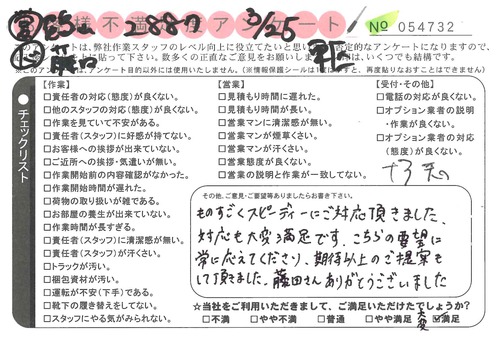 様不満足度アンケート
2887 3/25
No 054732
のアンケートは、弊社作業スタッフのレベル向上に役立てたいと思い
否定的なアンケートになりますので、
に貼って下さい。数多くの正直なご意見をお願いします。
は、いくつでも結構です。
※このアンケートは、アンケート目的以外には使用いたしません。(※情報保護シールは1
再度貼りなおすことはできません)
チェックリスト
【作業】
□責任者の対応(態度)が良くない。
□他のスタッフの対応(態度)が良くない。
□作業を見ていて不安がある。
□責任者(スタッフ)に好感が持てない。
□お客様への挨拶が出来ていない。
□ご近所への挨拶・気遣いが無い。
□作業開始前の内容確認がなかった。
□作業開始時間が遅れた。
□荷物の取り扱いが雑である。
□お部屋の養生が出来ていない。
□作業時間が長すぎる。
□責任者(スタッフ)に清潔感が無い。
□責任者(スタッフ)が汗くさい。
□トラックが汚い。
□梱包資材が汚い。
□運転が不安(下手)である。
□靴下の履き替えをしてない。
□スタッフにやる気がみられない。
【営業】
□見積もり時間に遅れた。
□見積もり時間が長い。
□営業マンに清潔感が無い。
□営業マンが煙草くさい。
□営業マンが汗くさい。
□営業態度が良くない。
□営業の説明と作業が一致してない。
【受付・その他】
□電話の対応が良くない。
□オプション業者の説明
・作業が良くない。
□オプション業者の対応
(態度)が良くない。
その他、ご意見・ご要望等ありましたらお書き下さい。
ものすごくスピーディーにご対応頂きました。
対応も大変満足です。こちらの要望に
常に応えてくださり、期待以上のご提案も
して頂きました。藤田さんありがとうございました
☆当社をご利用いただきまして、ご満足いただけたでしょうか?
□不満 □やや不満 □普通 □やや満足 ☑満足
大変